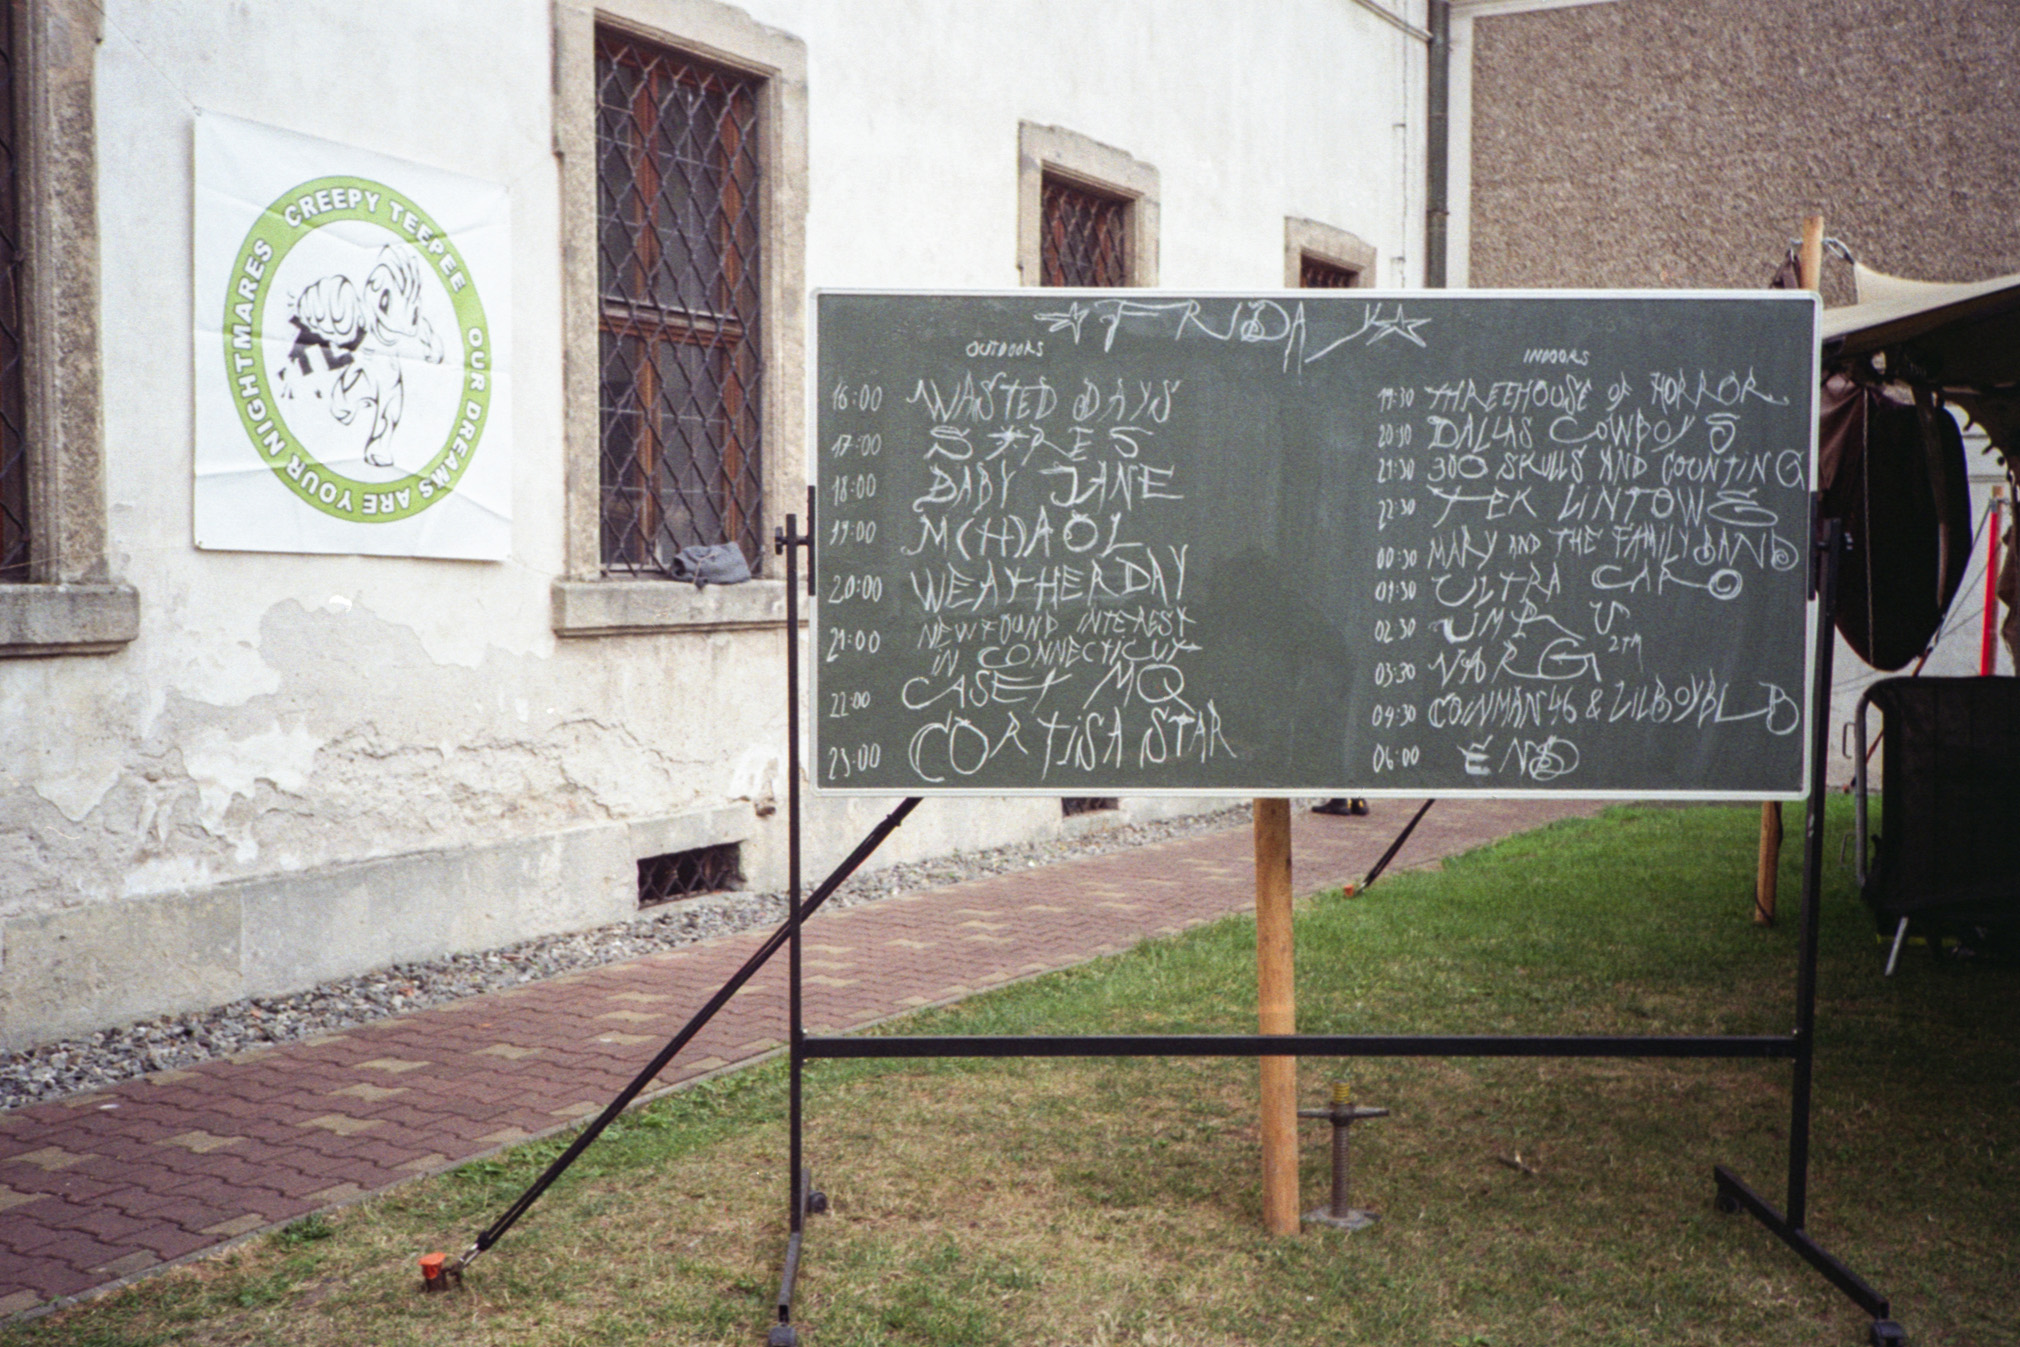 CREEPY TEEPEE OUR DREAMS ARE YOUR NIGHTMARES
FRIDAY
OUTDOORS
16:00 WASTED DAYS
17:00
18:00 BABY JANE
19:00 M(H)AOL
20:00 WEATHERDAY
21:00 NEWFOUND INTEREST
IN CONNECTICUT
22:00 CASEY MQ
23:00 CORTISA STAR
INDOORS
19:30 THREEHOUSE OF HORROR
20:30 DALLAS COWBOYS
21:30 300 SKULLS AND COUNTING
22:30 TEK LINTOWE
00:30 MARY AND THE FAMILY BAND
01:30 ULTRA CARO
02:30
03:30 NARG 2TM
04:30 COINMAN46 & LILBOYBLD
06:00 END